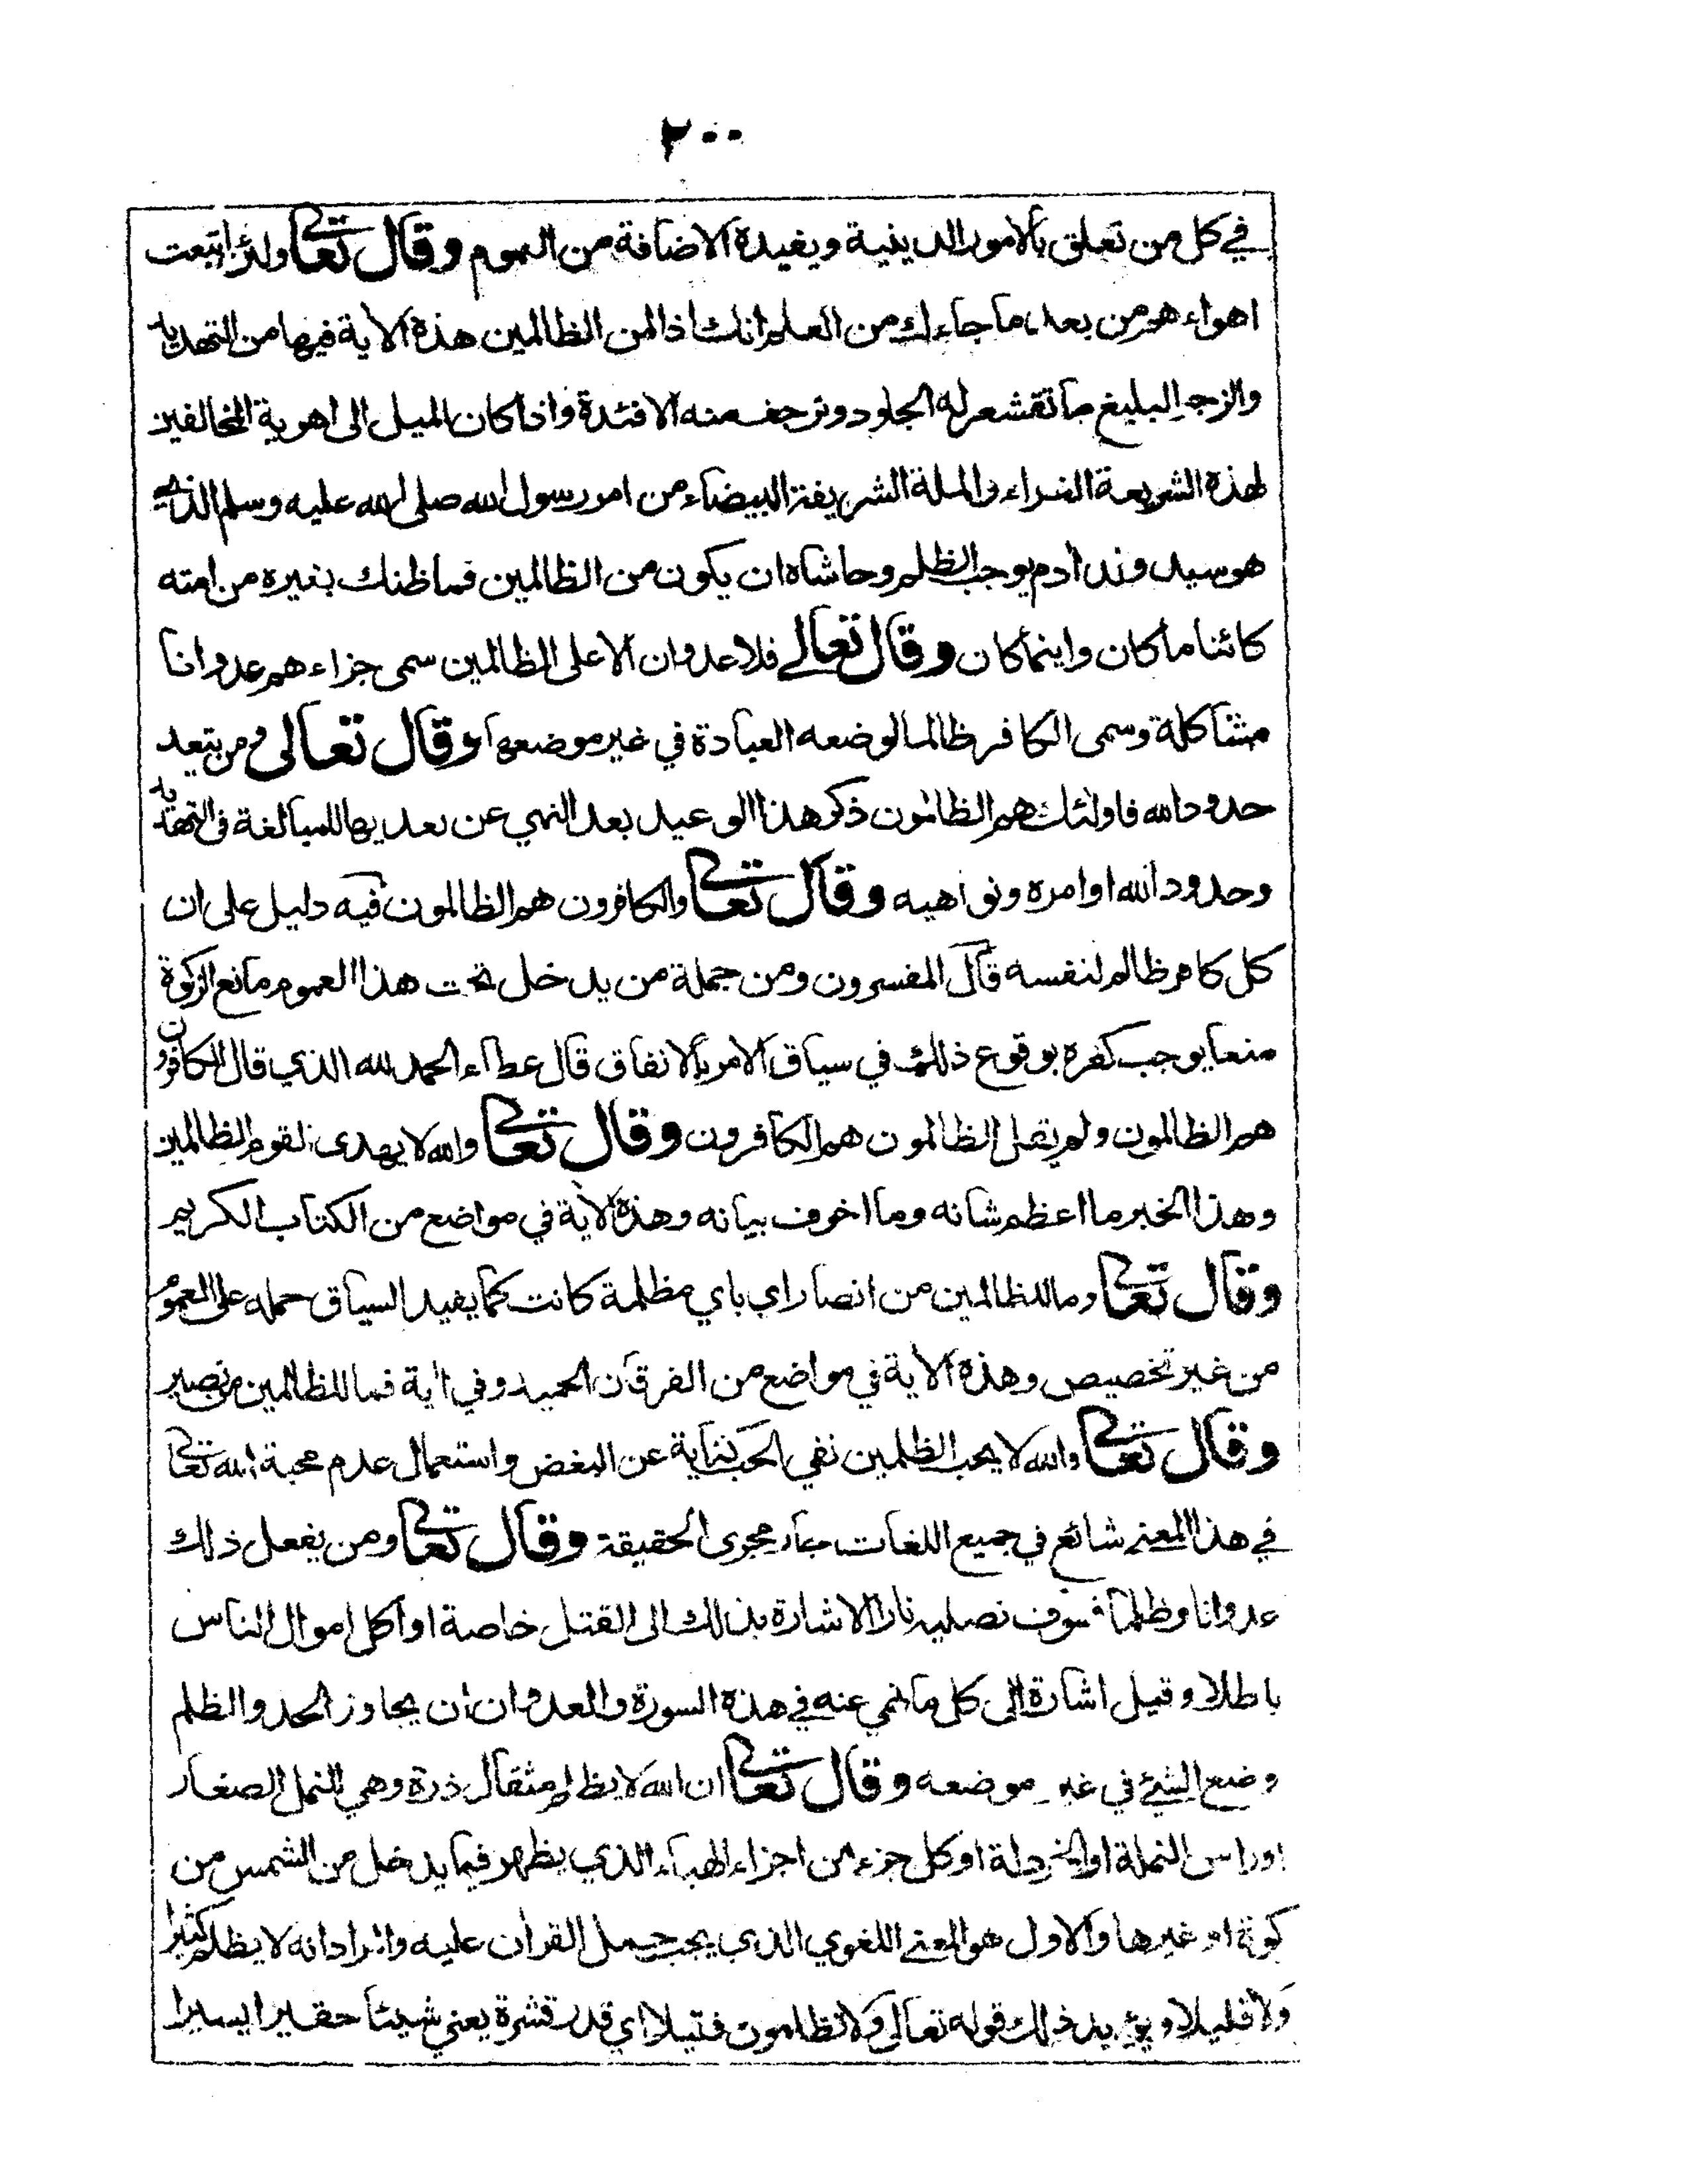 ٢٠٠
في كل من تعلق بالامور الدينية ويفيده الاضافة من العموم وقال تعالى ولئن اتبعت
اهواءهم من بعد ما جاءك من العلم انك اذا لمن الظالمين هذه الاية فيها من التهديد
والزجر البليغ ما تقشعر له الجلود وترجف منه الافئدة واذا كان الميل الى اهوية المخالفين
لهذه الشريعة الغراء والملة الشريفة البيضاء من امر رسول الله صلى الله عليه وسلم الذي
هو سيد ولد ادم يوجب الظلم وحاشاه ان يكون من الظالمين فما ظنك بغيره من امته
كائنا ما كان واينما كان وقال تعالى فلا عدوان الا على الظالمين سمى جزاءهم عدوانا
مشاكلة وسمى الكافر ظالما لوضعه العبادة في غير موضعها وقال تعالى ومن يتعد
حدود الله فاولئك هم الظالمون ذكر هذا الوعيد بعد النهي عن تعديها للمبالغة في التهديد
وحدود الله اوامره ونواهيه وقال تعالى والكافرون هم الظالمون فيه دليل على ان
كل كافر ظالم لنفسه قال المفسرون ومن جملة من يدخل تحت هذا العموم مانع الزكوة
منعا يوجب كفره بوقوع ذلك في سياق الامر بالانفاق قال عطاء الحمد لله الذي قال الكافرون
هم الظالمون ولم يقل الظالمون هم الكافرون وقال تعالى والله لا يهدى القوم الظالمين
وهذا الخبر ما اعظم شانه وما اخوف بيانه وهذه الاية في مواضع من الكتاب الكريم
وقال تعالى وما للظالمين من انصار اي باي مظلمة كانت كما يفيد السياق حمله على العموم
من غير تخصيص وهذه الاية في مواضع من الفرقان الحميد وفي اية فما للظالمين من نصير
وقال تعالى والله لا يحب الظلمين نفي الحب كناية عن البغض واستعمال عدم محبة الله تعالى
في هذا المعنى شائع في جميع اللغات جار مجرى الحقيقة وقال تعالى ومن يفعل ذلك
عدوانا وظلما فسوف نصليه نارا الاشارة بذلك الى القتل خاصة او اكل اموال الناس
باطلا وقيل اشارة الى كل ما نهي عنه في هذه السورة والعدوان ان يجاوز الحد والظلم
وضع الشئ في غير موضعه وقال تعالى ان الله لا يظلم مثقال ذرة وهي النمل الصغار
او راس النملة او الخردلة او كل جزء من اجزاء الهباء الذي يظهر فيما يدخل من الشمس من
كوة او غيرها والاول هو المعنى اللغوي الذي يجب حمل القران عليه والمراد انه لا يظلم كثيرا
ولا قليلا ويؤيد ذلك قوله تعالى ولا تظلمون فتيلا اي قدر قشرة يعني شيئا حقيرا يسيرا